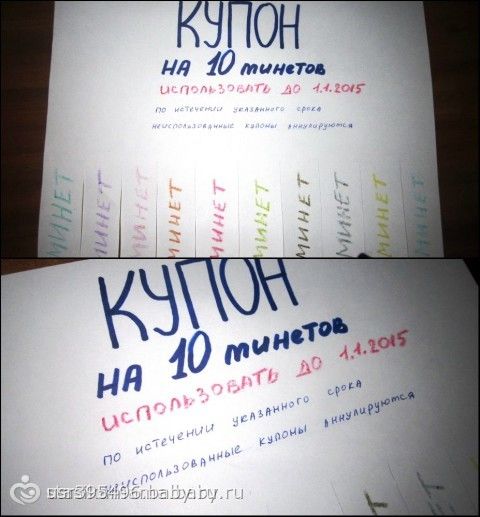 КУПОН
НА 10 минетов
ИСПОЛЬЗОВАТЬ ДО 1.1.2015
ПО ИСТЕЧЕНИИ УКАЗАННОГО СРОКА
НЕИСПОЛЬЗОВАННЫЕ КУПОНЫ АННУЛИРУЮТСЯ
МИНЕТ
МИНЕТ
МИНЕТ
МИНЕТ
МИНЕТ
МИНЕТ
МИНЕТ
МИНЕТ
МИНЕТ
МИНЕТ
КУПОН
НА 10 минетов
ИСПОЛЬЗОВАТЬ ДО 1.1.2015
ПО ИСТЕЧЕНИИ УКАЗАННОГО СРОКА
НЕИСПОЛЬЗОВАННЫЕ КУПОНЫ АННУЛИРУЮТСЯ